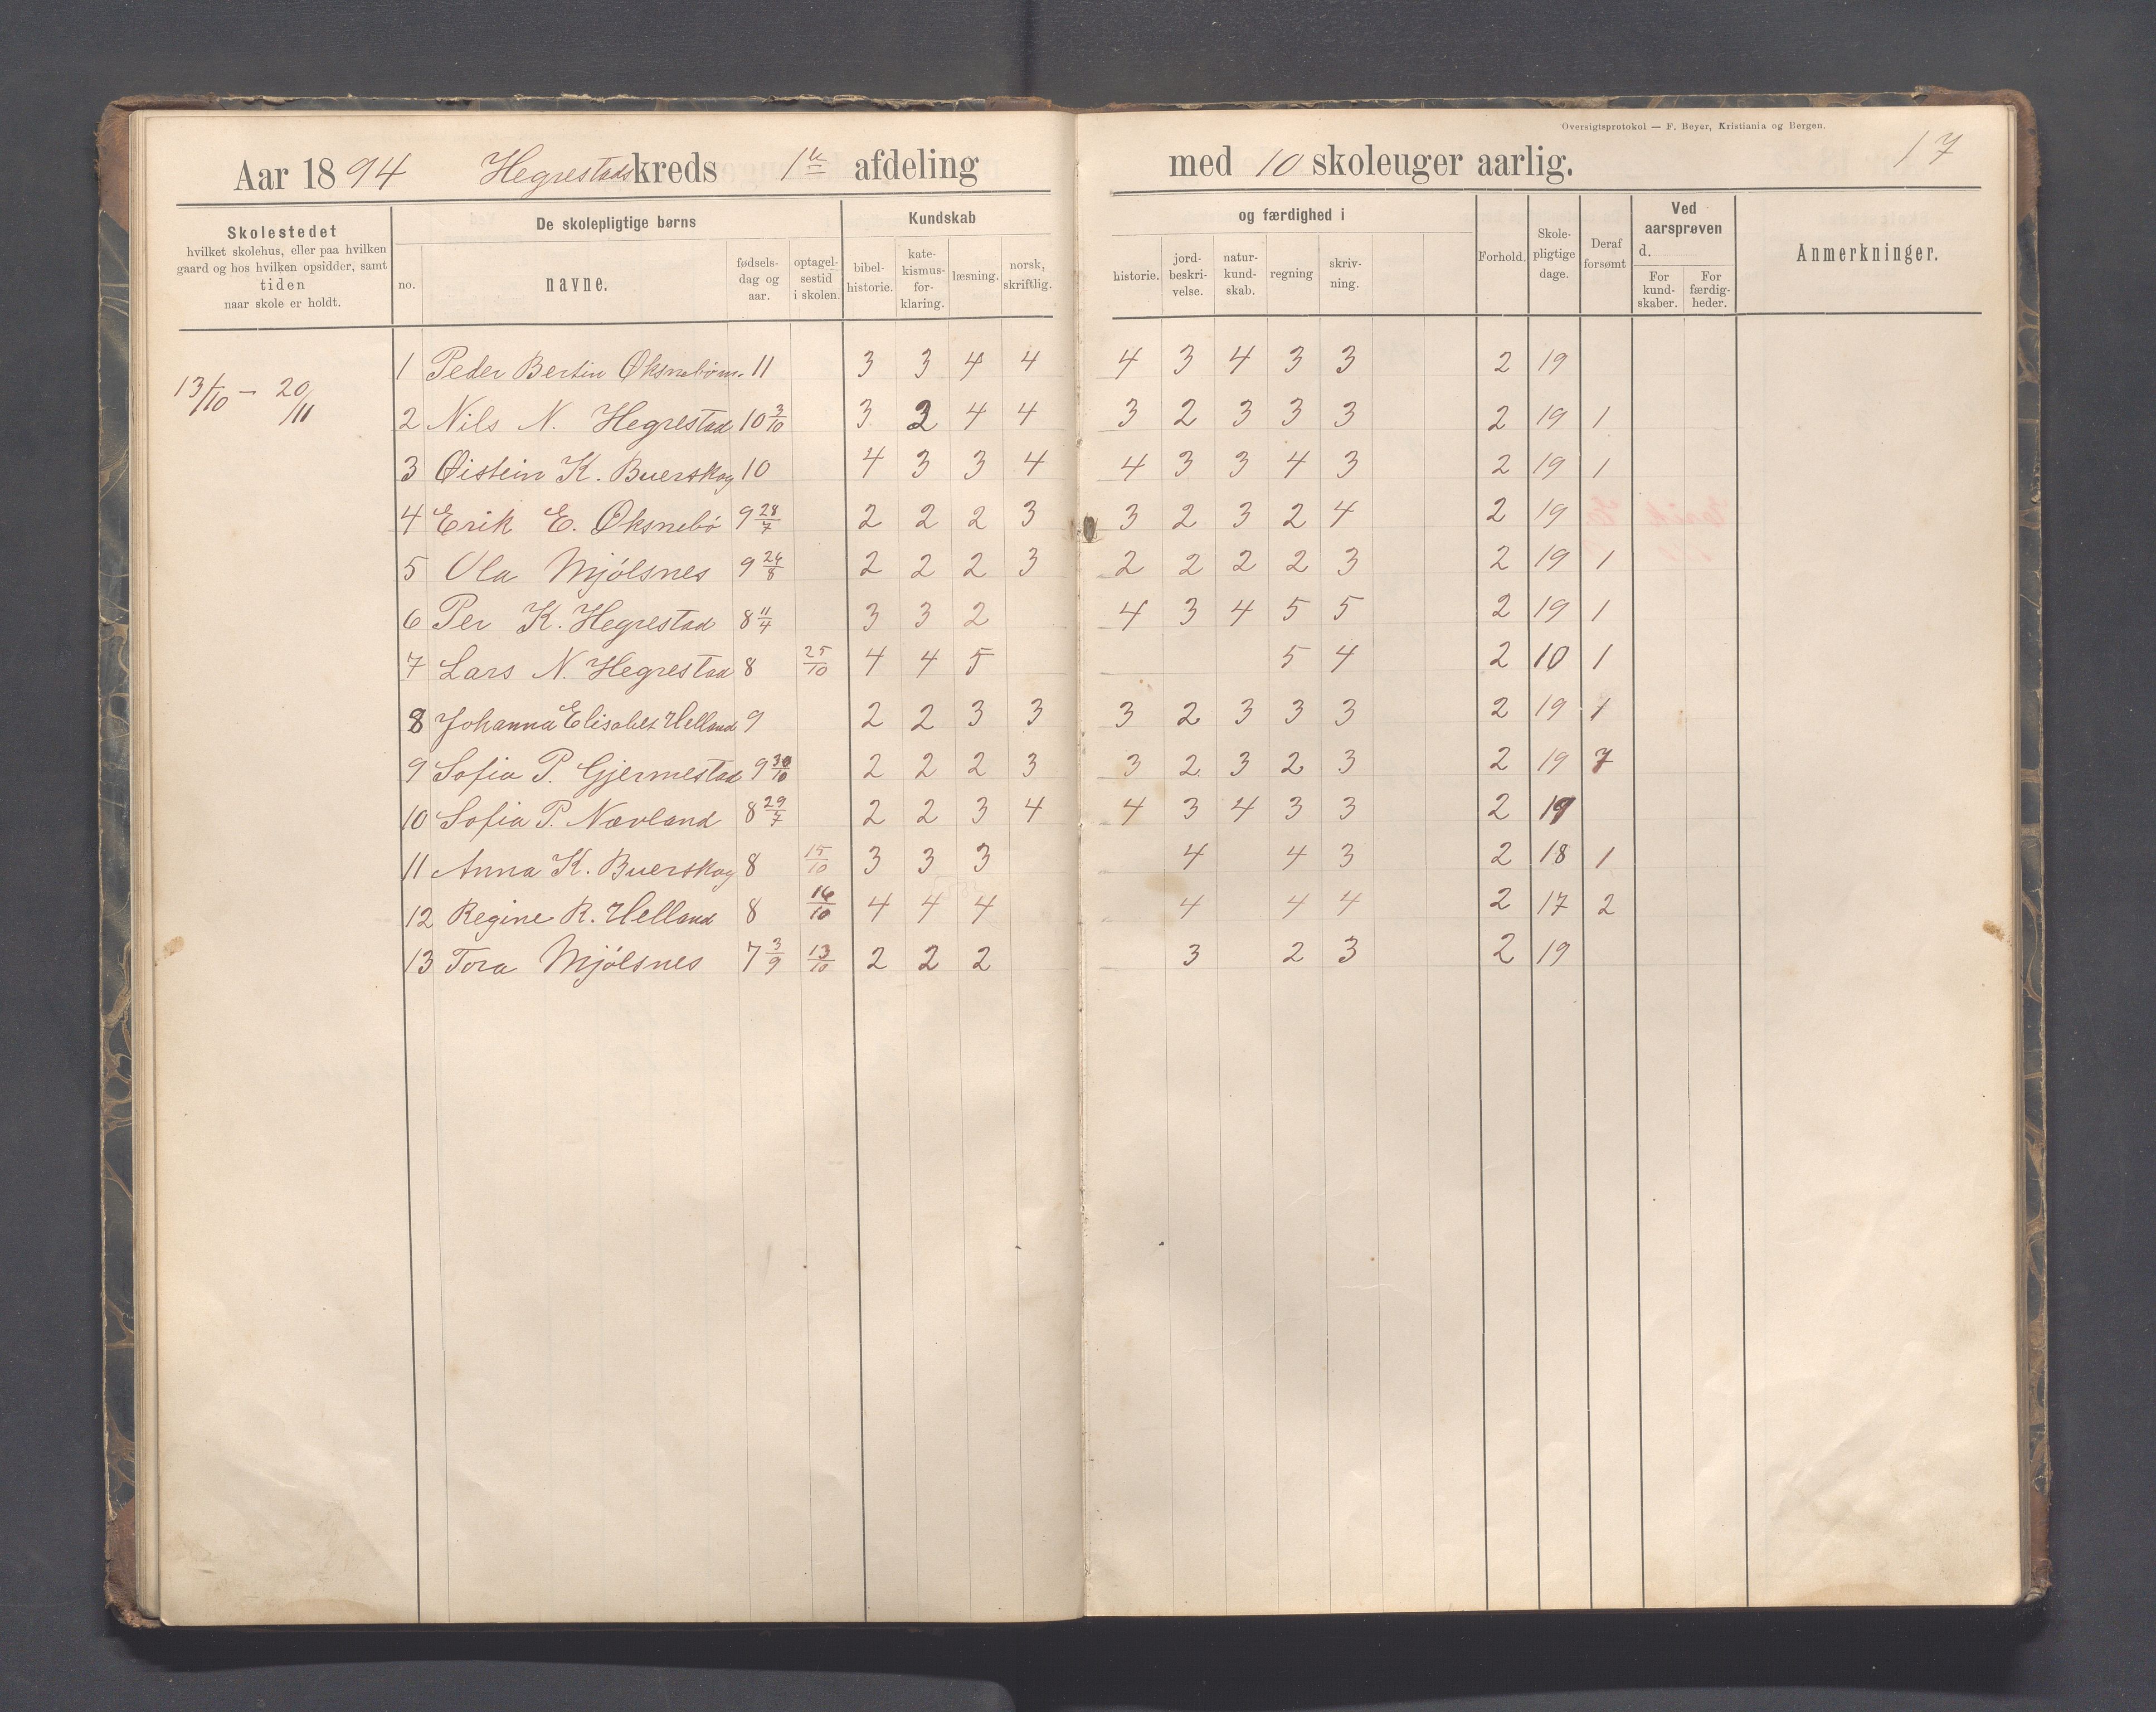 Oversigtsprotokol — F. Beyer, Kristiania og Bergen.
17
Aar 1894 Hegrestads kreds 1ste afdeling med 10 skoleuger aarlig.
Skolestedet
hvilket skolehus, eller paa hvilken
gaard og hos hvilken opsidder, samt
tiden
naar skole er holdt.
De skolepligtige børns
no.
navne.
fødsels-
dag og
aar.
optagel-
sestid
i skolen.
Kundskab
bibel-
historie.
kate-
kismus-
for-
klaring.
læsning.
norsk,
skriftlig.
og færdighed i
historie.
jord-
beskri-
velse.
natur-
kund-
skab.
regning
skriv-
ning.
Forhold.
Skole-
pligtige
dage.
Deraf
forsømt
Ved
aarsprøven
d.
For
kund-
skaber.
For
færdig-
heder.
Anmerkninger.
13/10 – 20/11
1 Peder Bertin Øksnebøm. 11 3 3 4 4 4 3 4 3 3 2 19
2 Nils N. Hegrestad 10 3/10 3 3 4 4 3 2 3 3 3 2 19 1
3 Øistein K. Buerskog 10 4 3 3 4 4 3 3 4 3 2 19 1
4 Erik E. Øksnebö 9 28/7 2 2 2 3 3 2 3 2 4 2 19
5 Ola Mjölsnes 9 24/8 2 2 2 3 2 2 2 2 3 2 19 1
6 Per K. Hegrestad 8 11/4 3 3 2 4 3 4 5 5 2 19 1
7 Lars N. Hegrestad 8 25/10 4 4 5 5 4 2 10 1
8 Johanna Elisabet Helland 9 2 2 3 3 3 2 3 3 3 2 19 1
9 Sofia P. Gjermestad 9 30/10 2 2 2 3 3 2 3 2 3 2 19 7
10 Sofia P. Nævland 8 29/7 2 2 3 4 4 3 4 3 3 2 19
11 Anna K. Buerskog 8 15/10 3 3 3 4 4 3 2 18 1
12 Regine R. Helland 8 16/10 4 4 4 4 4 4 2 17 2
13 Tora Mjölsnes 7 3/9 13/10 2 2 2 3 2 3 2 19